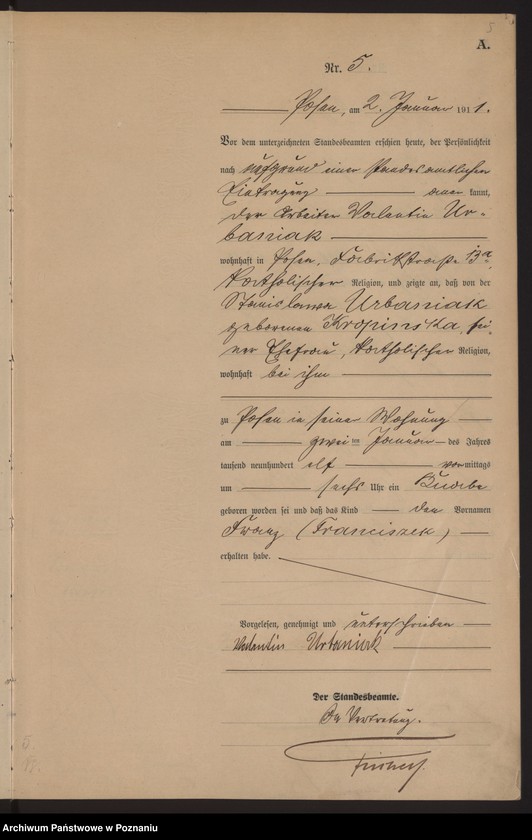 5
A.
Nr. 5.
Posen, am 2. Januar 1911.
Vor dem unterzeichneten Standesbeamten erschien heute, der Persönlichkeit
nach aufgrund einer standesamtlichen
Eintragung anerkannt,
der Arbeiter Valentin Ur-
baniak
wohnhaft in Posen, Fabrikstraße 13a,
katholischer Religion, und zeigte an, daß von der
Stanislawa Urbaniak
geborenen Kropinska, sei-
ner Ehefrau, katholischer Religion,
wohnhaft bei ihm
zu Posen in seiner Wohnung
am zwei ten Januar des Jahres
tausend neunhundert elf vormittags
um sechs Uhr ein Knabe
geboren worden sei und daß das Kind den Vornamen
Franz (Franciszek)
erhalten habe.
Vorgelesen, genehmigt und unterschrieben
Valentin Urbaniak
Der Standesbeamte.
In Vertretung.
5
Archiwum Państwowe w Poznaniu